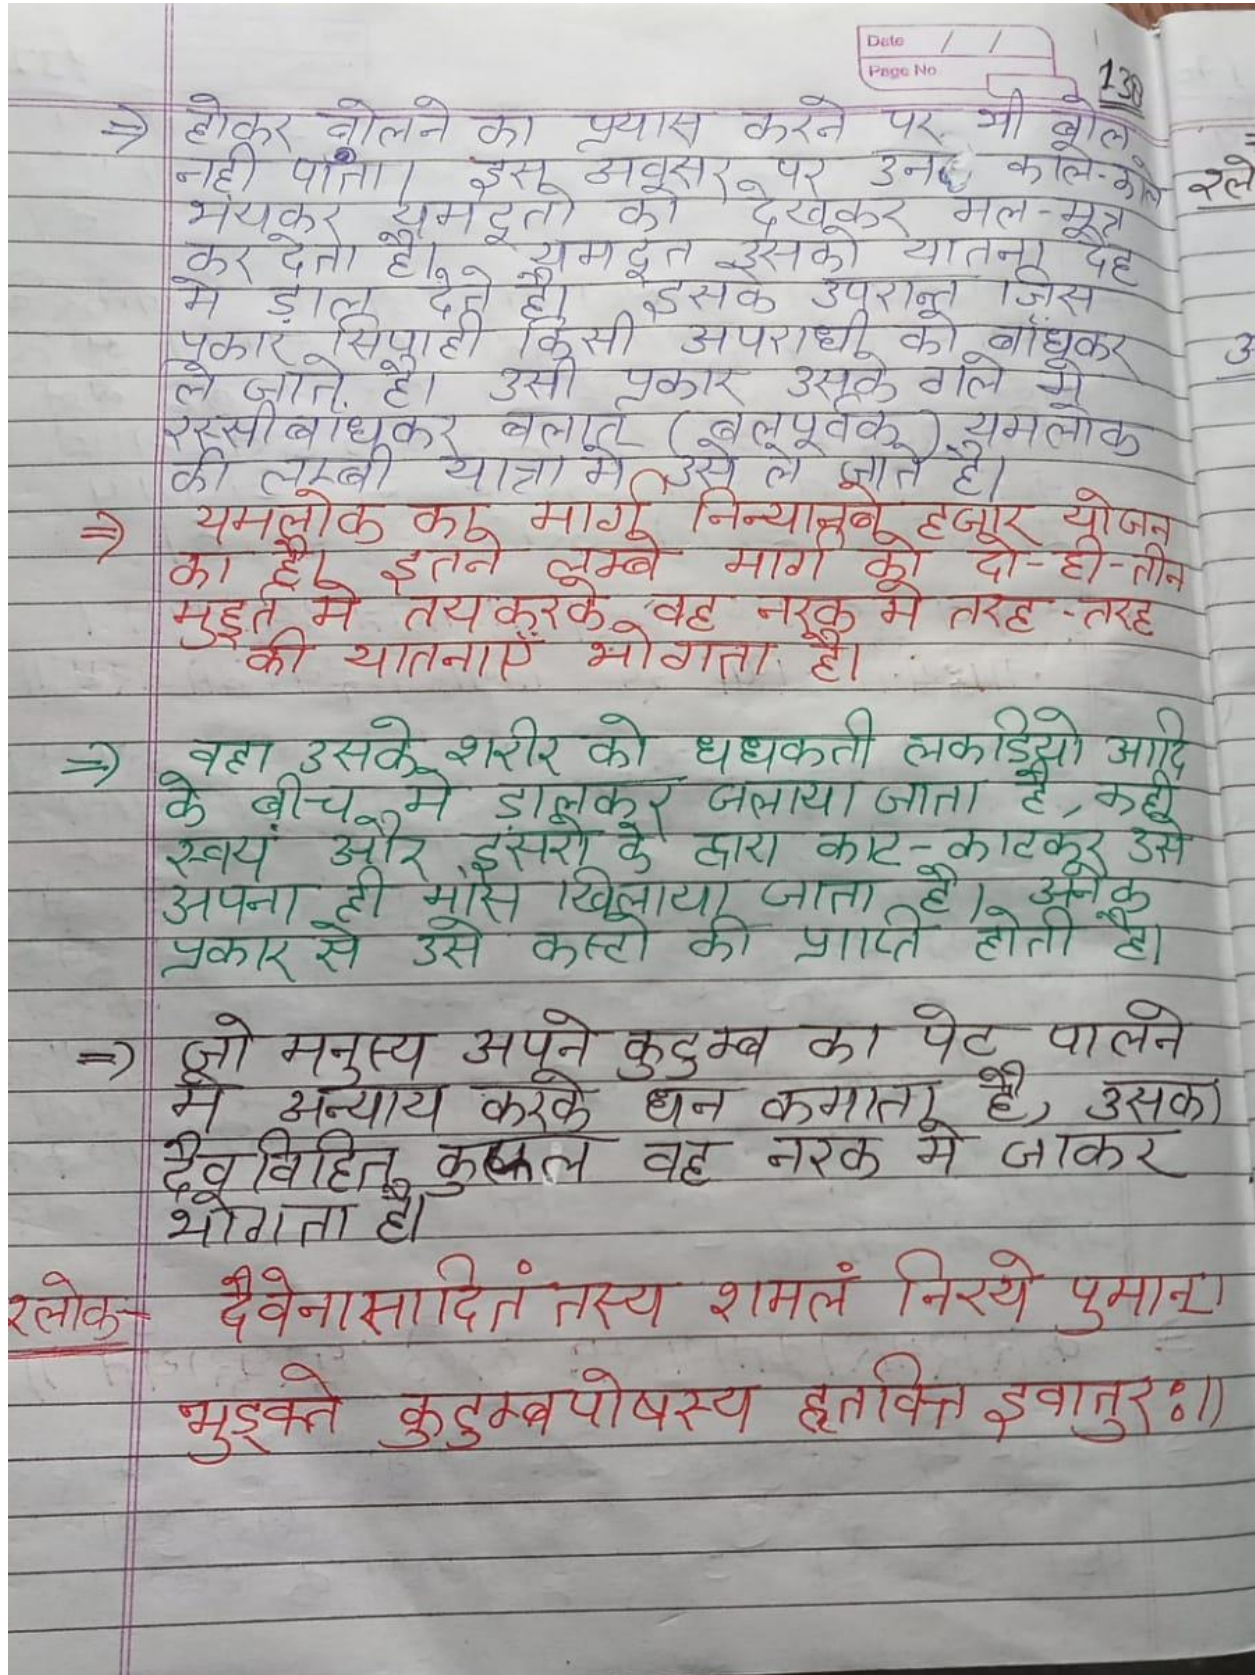 Date / /
Page No.
138
=> होकर बोलने का प्रयास करने पर भी बोल
नही पाता। इस अवसर पर उन काले-काले
भंयकर यमदूतो को देखकर मल-मूत्र
कर देता है। यमदूत उसको यातना देह
मे ड़ाल देते है। इसके उपरान्त जिस
प्रकार सिपाही किसी अपराधी को बाँधकर
ले जाते है। उसी प्रकार उसके गले मे
रस्सी बाधकर बलात (बलपूर्वक) यमलोक
की लम्बी यात्रा मे उसे ले जाते है।
=> यमलोक का मार्ग निन्यानबे हजार योजन
का है। इतने लम्बे मार्ग को दो-ही-तीन
मुहूर्त मे तय करके वह नरक मे तरह-तरह
की यातनाएँ भोगता है।
=> वहा उसके शरीर को धधकती लकडियो आदि
के बीच मे डालकर जलाया जाता है, कही
स्वयं और दूसरो के द्वारा काट-काटकर उसे
अपना ही मांस खिलाया जाता है। अनेक
प्रकार से उसे कस्टो की प्राप्ति होती है।
=> जो मनुस्य अपने कुटुम्ब का पेट पालने
मे अन्याय करके धन कमाता है, उसका
दैवविहित कुफल वह नरक मे जाकर
भोगता है।
श्लोक- दैवेनासादितं तस्य शमलं निरये पुमान।
भुड्क्ते कुटुम्बपोषस्य हृतवित्त इवातुरः॥
श्लो